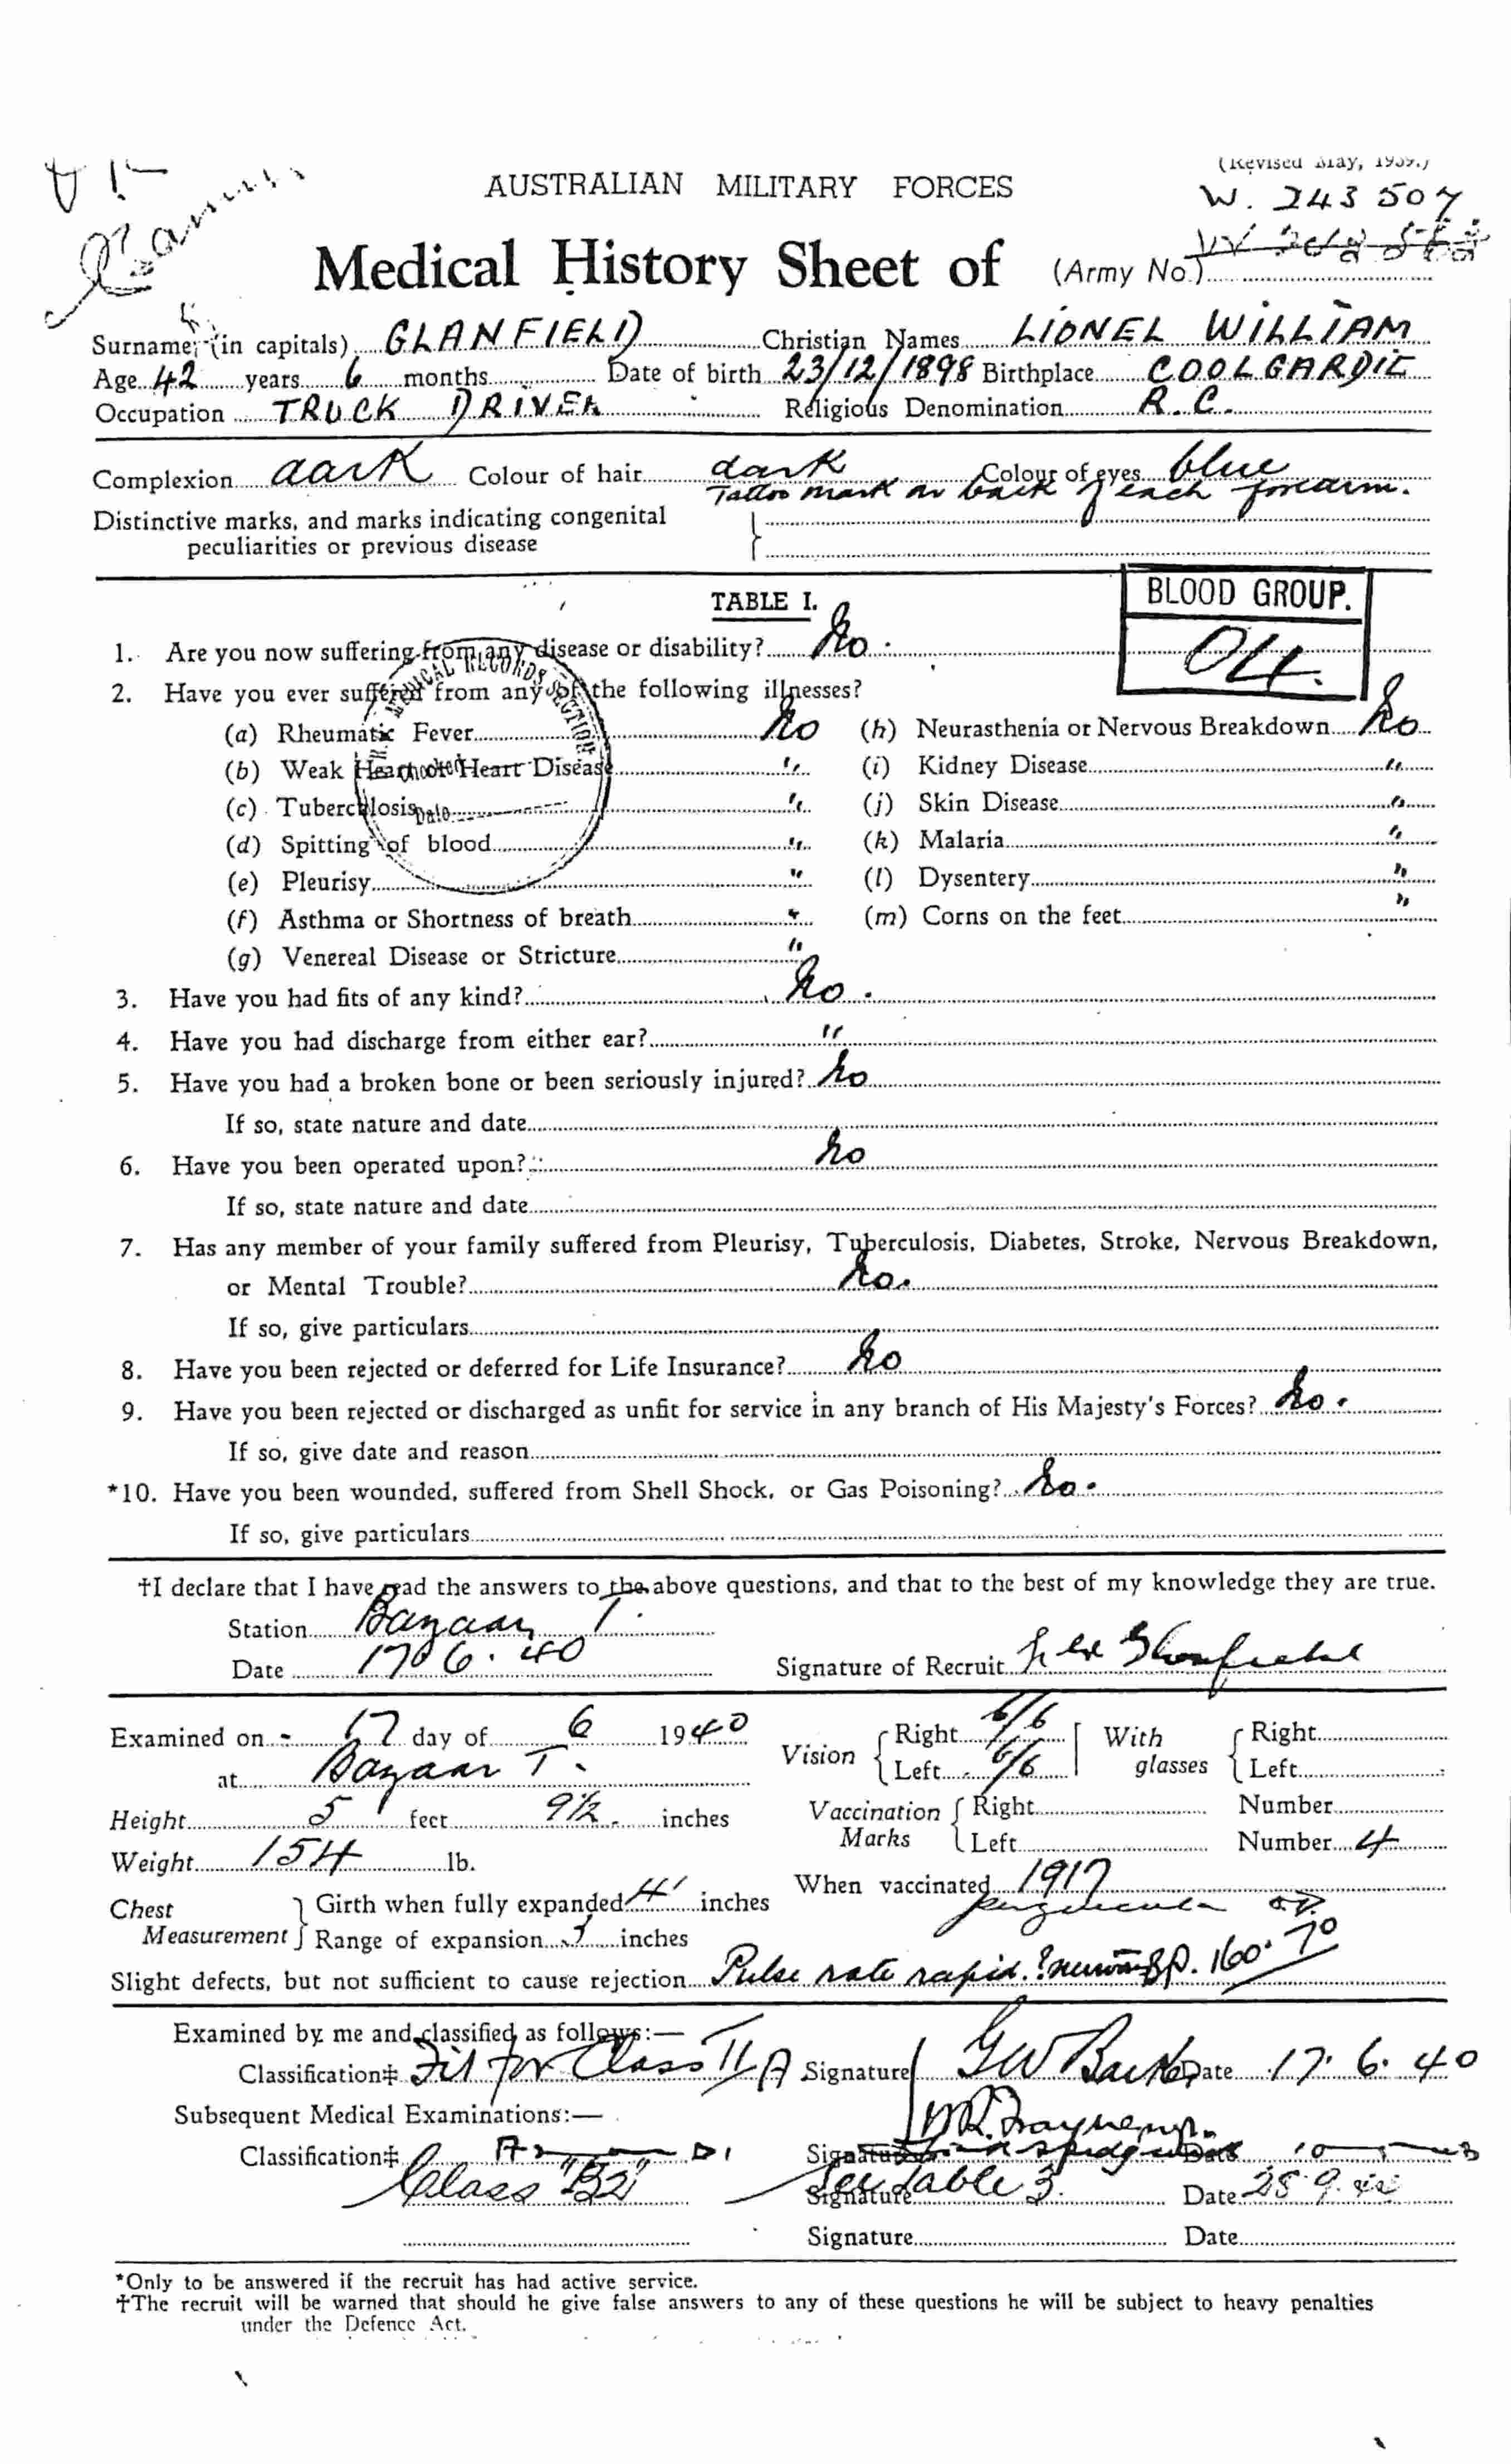 (Revised May, 1939.)
AUSTRALIAN MILITARY FORCES
W. 243 507
Medical History Sheet of (Army No.)
Surname (in capitals) GLANFIELD Christian Names LIONEL WILLIAM
Age 42 years 6 months Date of birth 23/12/1898 Birthplace COOLGARDIE
Occupation TRUCK DRIVER Religious Denomination R.C.
Complexion dark Colour of hair dark Colour of eyes blue
Tattoo mark on back of each forearm.
Distinctive marks, and marks indicating congenital
peculiarities or previous disease
TABLE I.
BLOOD GROUP.
O4.
1. Are you now suffering from any disease or disability? No.
MEDICAL RECORDS SECTION
Date
2. Have you ever suffered from any of the following illnesses?
(a) Rheumatic Fever No (h) Neurasthenia or Nervous Breakdown No
(b) Weak Heart or Heart Disease " (i) Kidney Disease "
(c) Tuberculosis " (j) Skin Disease "
(d) Spitting of blood " (k) Malaria "
(e) Pleurisy " (l) Dysentery "
(f) Asthma or Shortness of breath " (m) Corns on the feet "
(g) Venereal Disease or Stricture "
3. Have you had fits of any kind? No.
4. Have you had discharge from either ear? "
5. Have you had a broken bone or been seriously injured? No
If so, state nature and date
6. Have you been operated upon? No
If so, state nature and date
7. Has any member of your family suffered from Pleurisy, Tuberculosis, Diabetes, Stroke, Nervous Breakdown,
or Mental Trouble? No.
If so, give particulars
8. Have you been rejected or deferred for Life Insurance? No
9. Have you been rejected or discharged as unfit for service in any branch of His Majesty's Forces? No.
If so, give date and reason
*10. Have you been wounded, suffered from Shell Shock, or Gas Poisoning? No.
If so, give particulars
†I declare that I have read the answers to the above questions, and that to the best of my knowledge they are true.
Station Bazaar T.
Date 17.6.40 Signature of Recruit Glanfield
Examined on 17 day of 6 1940 Vision Right 6/6 With glasses Right
at Bazaar T. Left 6/6 Left
Height 5 feet 9½ inches Vaccination Marks Right Number
Weight 154 lb. Left Number 4
When vaccinated 1917
Chest Measurement Girth when fully expanded 41 inches
Range of expansion 3 inches
Slight defects, but not sufficient to cause rejection Pulse rate rapid. BP. 160. 70
Examined by me and classified as follows:—
Classification‡ Fit for Class II A Signature GW Barker Date 17. 6. 40
Subsequent Medical Examinations:—
Classification‡ Signature Date
Class "B2" See Table 3. Signature Date 25.9.42
Signature Date
*Only to be answered if the recruit has had active service.
†The recruit will be warned that should he give false answers to any of these questions he will be subject to heavy penalties
under the Defence Act.